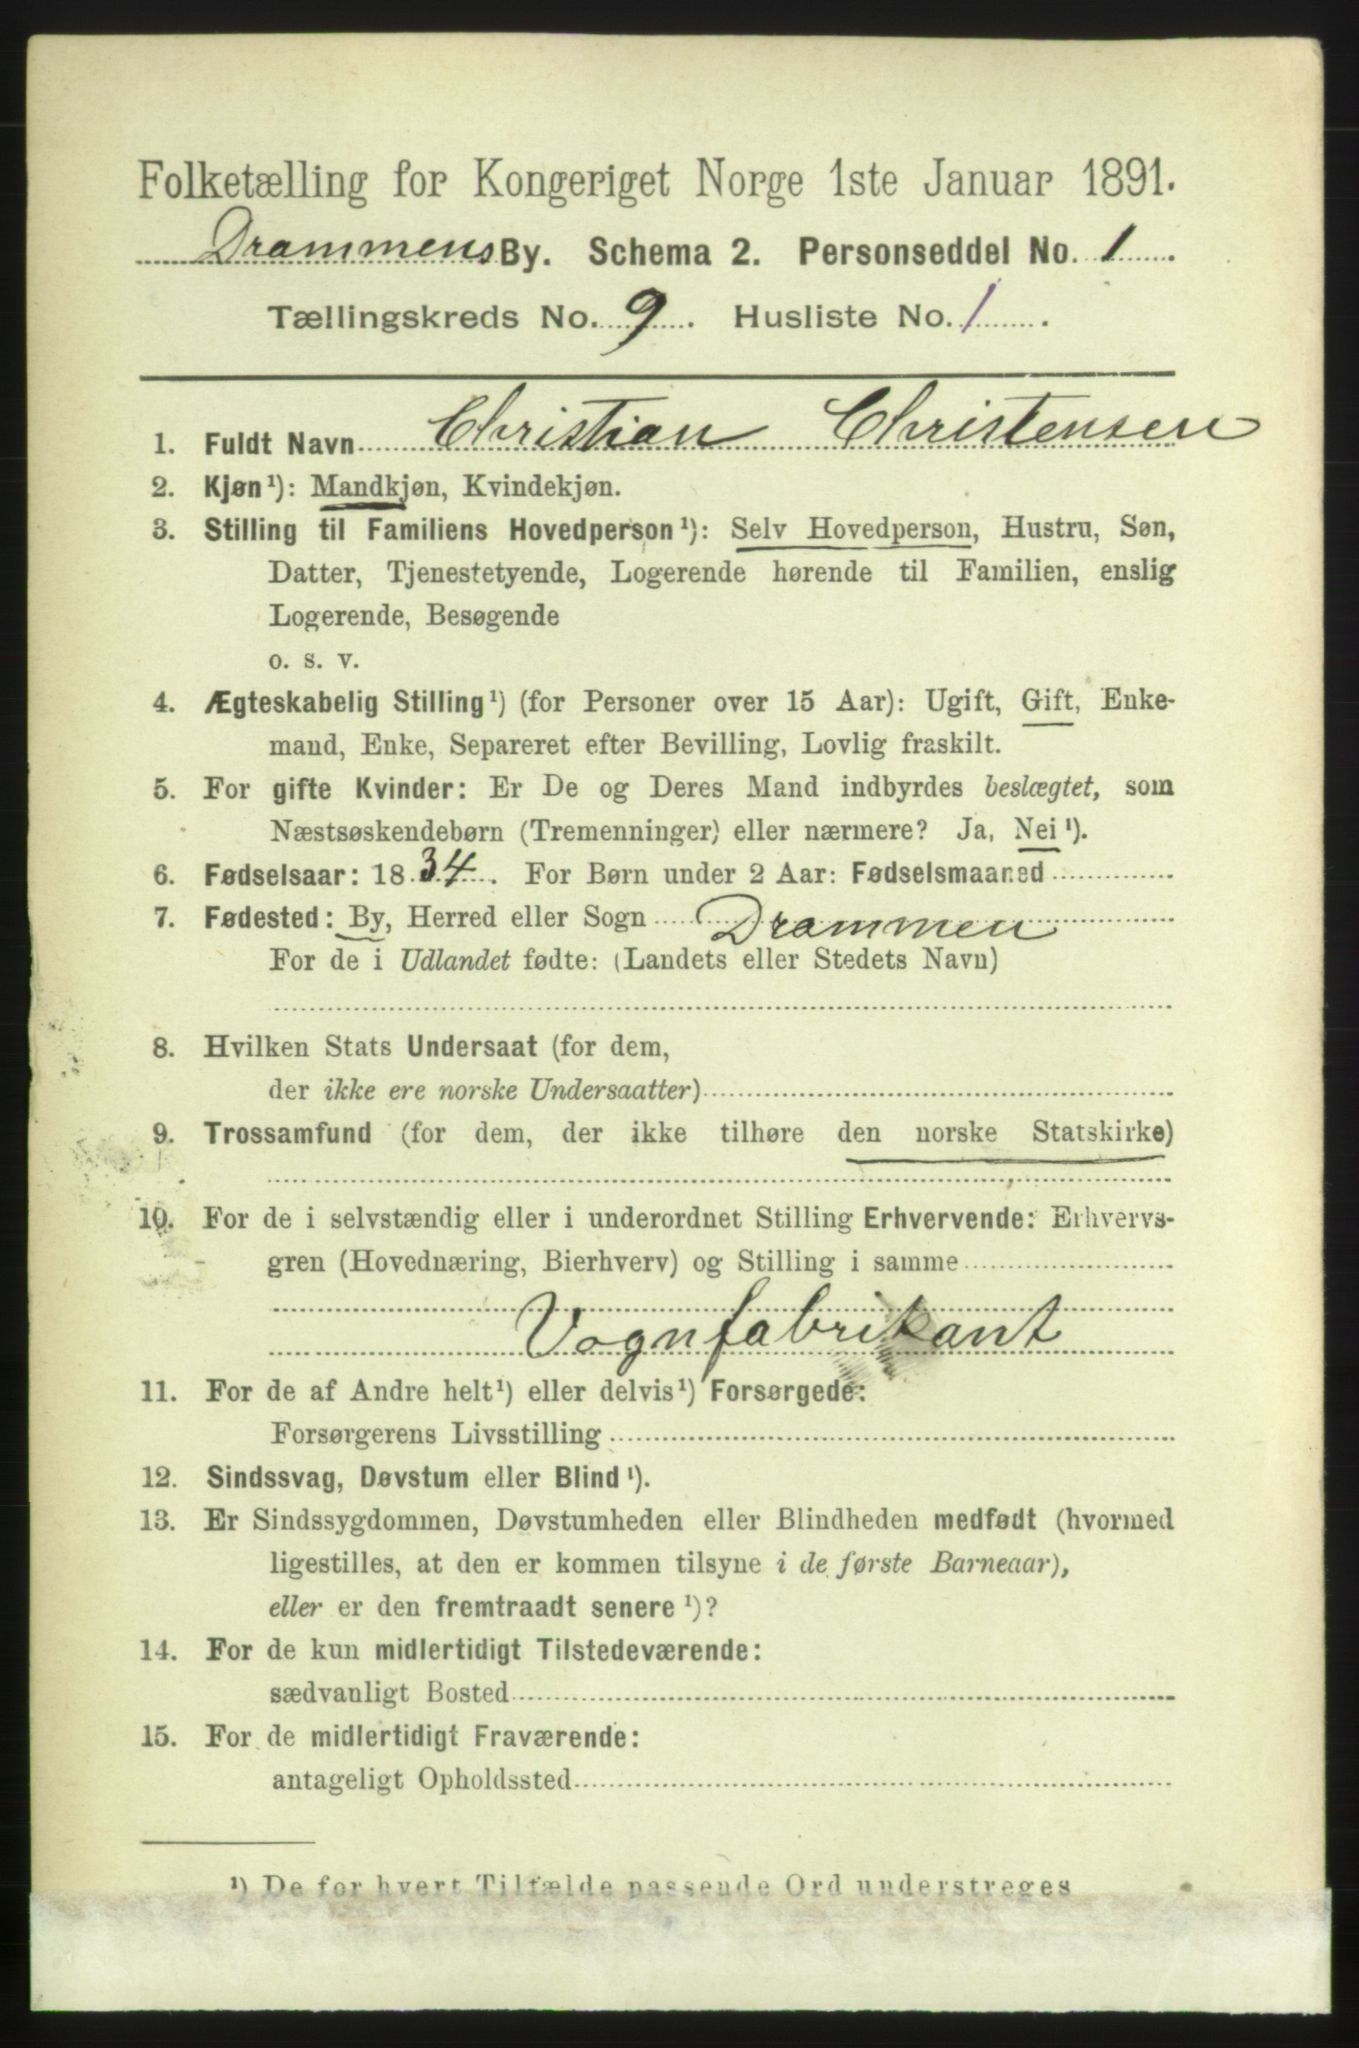 Folketælling for Kongeriget Norge 1ste Januar 1891.
Drammens By. Schema 2. Personseddel No. 1.
Tællingskreds No. 9. Husliste No. 1.
1. Fuldt Navn Christian Christensen
2. Kjøn¹): Mandkjøn, Kvindekjøn.
3. Stilling til Familiens Hovedperson¹): Selv Hovedperson, Hustru, Søn,
Datter, Tjenestetyende, Logerende hørende til Familien, enslig
Logerende, Besøgende
o. s. v.
4. Ægteskabelig Stilling¹) (for Personer over 15 Aar): Ugift, Gift, Enke-
mand, Enke, Separeret efter Bevilling, Lovlig fraskilt.
5. For gifte Kvinder: Er De og Deres Mand indbyrdes beslægtet, som
Næstsøskendebørn (Tremenninger) eller nærmere? Ja, Nei¹).
6. Fødselsaar: 1834. For Børn under 2 Aar: Fødselsmaaned
7. Fødested: By, Herred eller Sogn Drammen
For de i Udlandet fødte: (Landets eller Stedets Navn)
8. Hvilken Stats Undersaat (for dem,
der ikke ere norske Undersaatter)
9. Trossamfund (for dem, der ikke tilhøre den norske Statskirke)
10. For de i selvstændig eller i underordnet Stilling Erhvervende: Erhvervs-
gren (Hovednæring, Bierhverv) og Stilling i samme
Vognfabrikant
11. For de af Andre helt¹) eller delvis¹) Forsørgede:
Forsørgerens Livsstilling
12. Sindssvag, Døvstum eller Blind¹).
13. Er Sindssygdommen, Døvstumheden eller Blindheden medfødt (hvormed
ligestilles, at den er kommen tilsyne i de første Barneaar),
eller er den fremtraadt senere¹)?
14. For de kun midlertidigt Tilstedeværende:
sædvanligt Bosted
15. For de midlertidigt Fraværende:
antageligt Opholdssted
¹) De for hvert Tilfælde passende Ord understreges